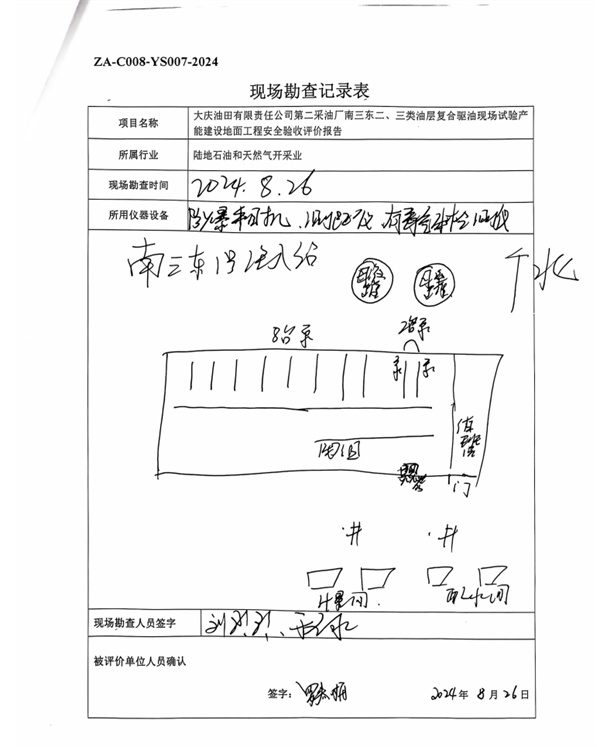 ZA-C008-YS007-2024
现场勘查记录表
项目名称
大庆油田有限责任公司第二采油厂南三东二、三类油层复合驱油现场试验产
能建设地面工程安全验收评价报告
所属行业
陆地石油和天然气开采业
现场勘查时间
2024.8.26
所用仪器设备
防爆相机、测距仪、有毒气体检测仪
南三东1号注入站
北
8台泵
2台泵
泵
泵
值班室
阀组
门
井
井
计量间
配水间
现场勘查人员签字
被评价单位人员确认
签字:
2024年 8月26日